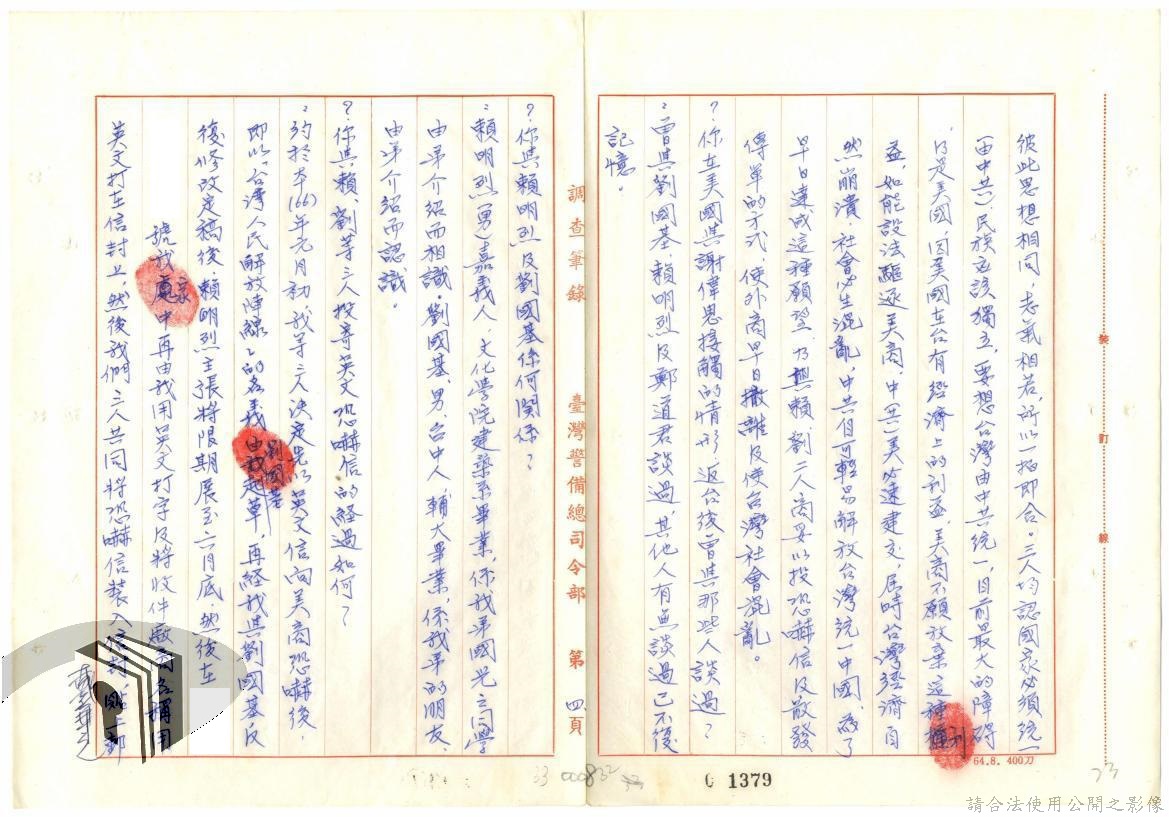 彼此思想相同,志氣相若,所以一拍即合。三人均認國家必須統一
(由中共),民族必該獨立,要想台灣由中共統一,目前最大的障碍
乃是美國,因美國在台有經濟上的利益,美商不願放棄這種
利
益,如能設法驅逐美商,中(共)美必速建交,屆時台灣經濟自
然崩潰,社會必生混亂,中共自可輕易解放台灣統一中國,為了
早日達成這種願望,乃與賴、劉二人商妥以投恐嚇信及散發
傳單的方式,使外商早日撤離及使台灣社會混亂。
?你在美國與謝偉思接觸的情形返台後曾與那些人談過?
:曾與劉國基、賴明烈及鄭道君談過,其他人有無談過已不復
記憶。
?你與賴明烈及劉國基係何関係?
:賴明烈(男)嘉義人,文化學院建築系畢業,係我弟國光之同學
由弟介紹而相識。劉國基,男,台中人,輔大畢業,係我弟的朋友,
由弟介紹而認識。
?你與賴、劉等三人投寄英文恐嚇信的經過如何?
:約於本(66)年元月初我等三人決定先以英文信向美商恐嚇後,
即以「台灣人民解放陣線」的名義由我起草,再経我與劉國基反
劉國基
復修改定稿後,賴明烈主張將限期展至六月底,然後在
我處中再由我用英文打字及將收件廠商名稱用
家
英文打在信封上,然後我們三人共同將恐嚇信裝入信封
調查筆錄 臺灣警備總司令部 第四頁
裝 訂 線
64.8. 400刀
000832
1379
73
請合法使用公開之影像